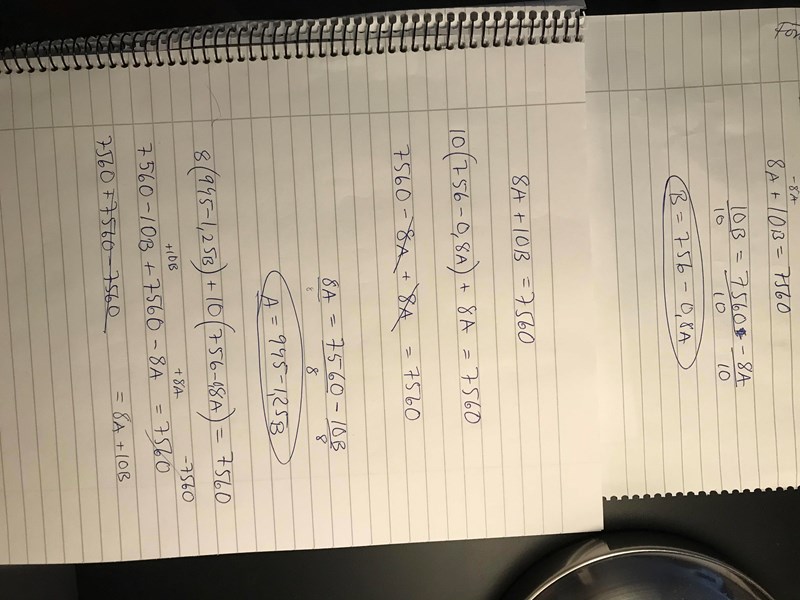 -8A
8A + 10B = 7560
10B = 7560 - 8A
10 10 10
B = 756 - 0,8A
8A + 10B = 7560
10(756 - 0,8A) + 8A = 7560
7560 - 8A + 8A = 7560
8A = 7560 - 10B
8 8 8
A = 945 - 1,25B
8(945 - 1,25B) + 10(756 - 0,8A) = 7560
+10B +8A -7560
7560 - 10B + 7560 - 8A = 7560
7560 + 7560 - 7560 = 8A + 10B